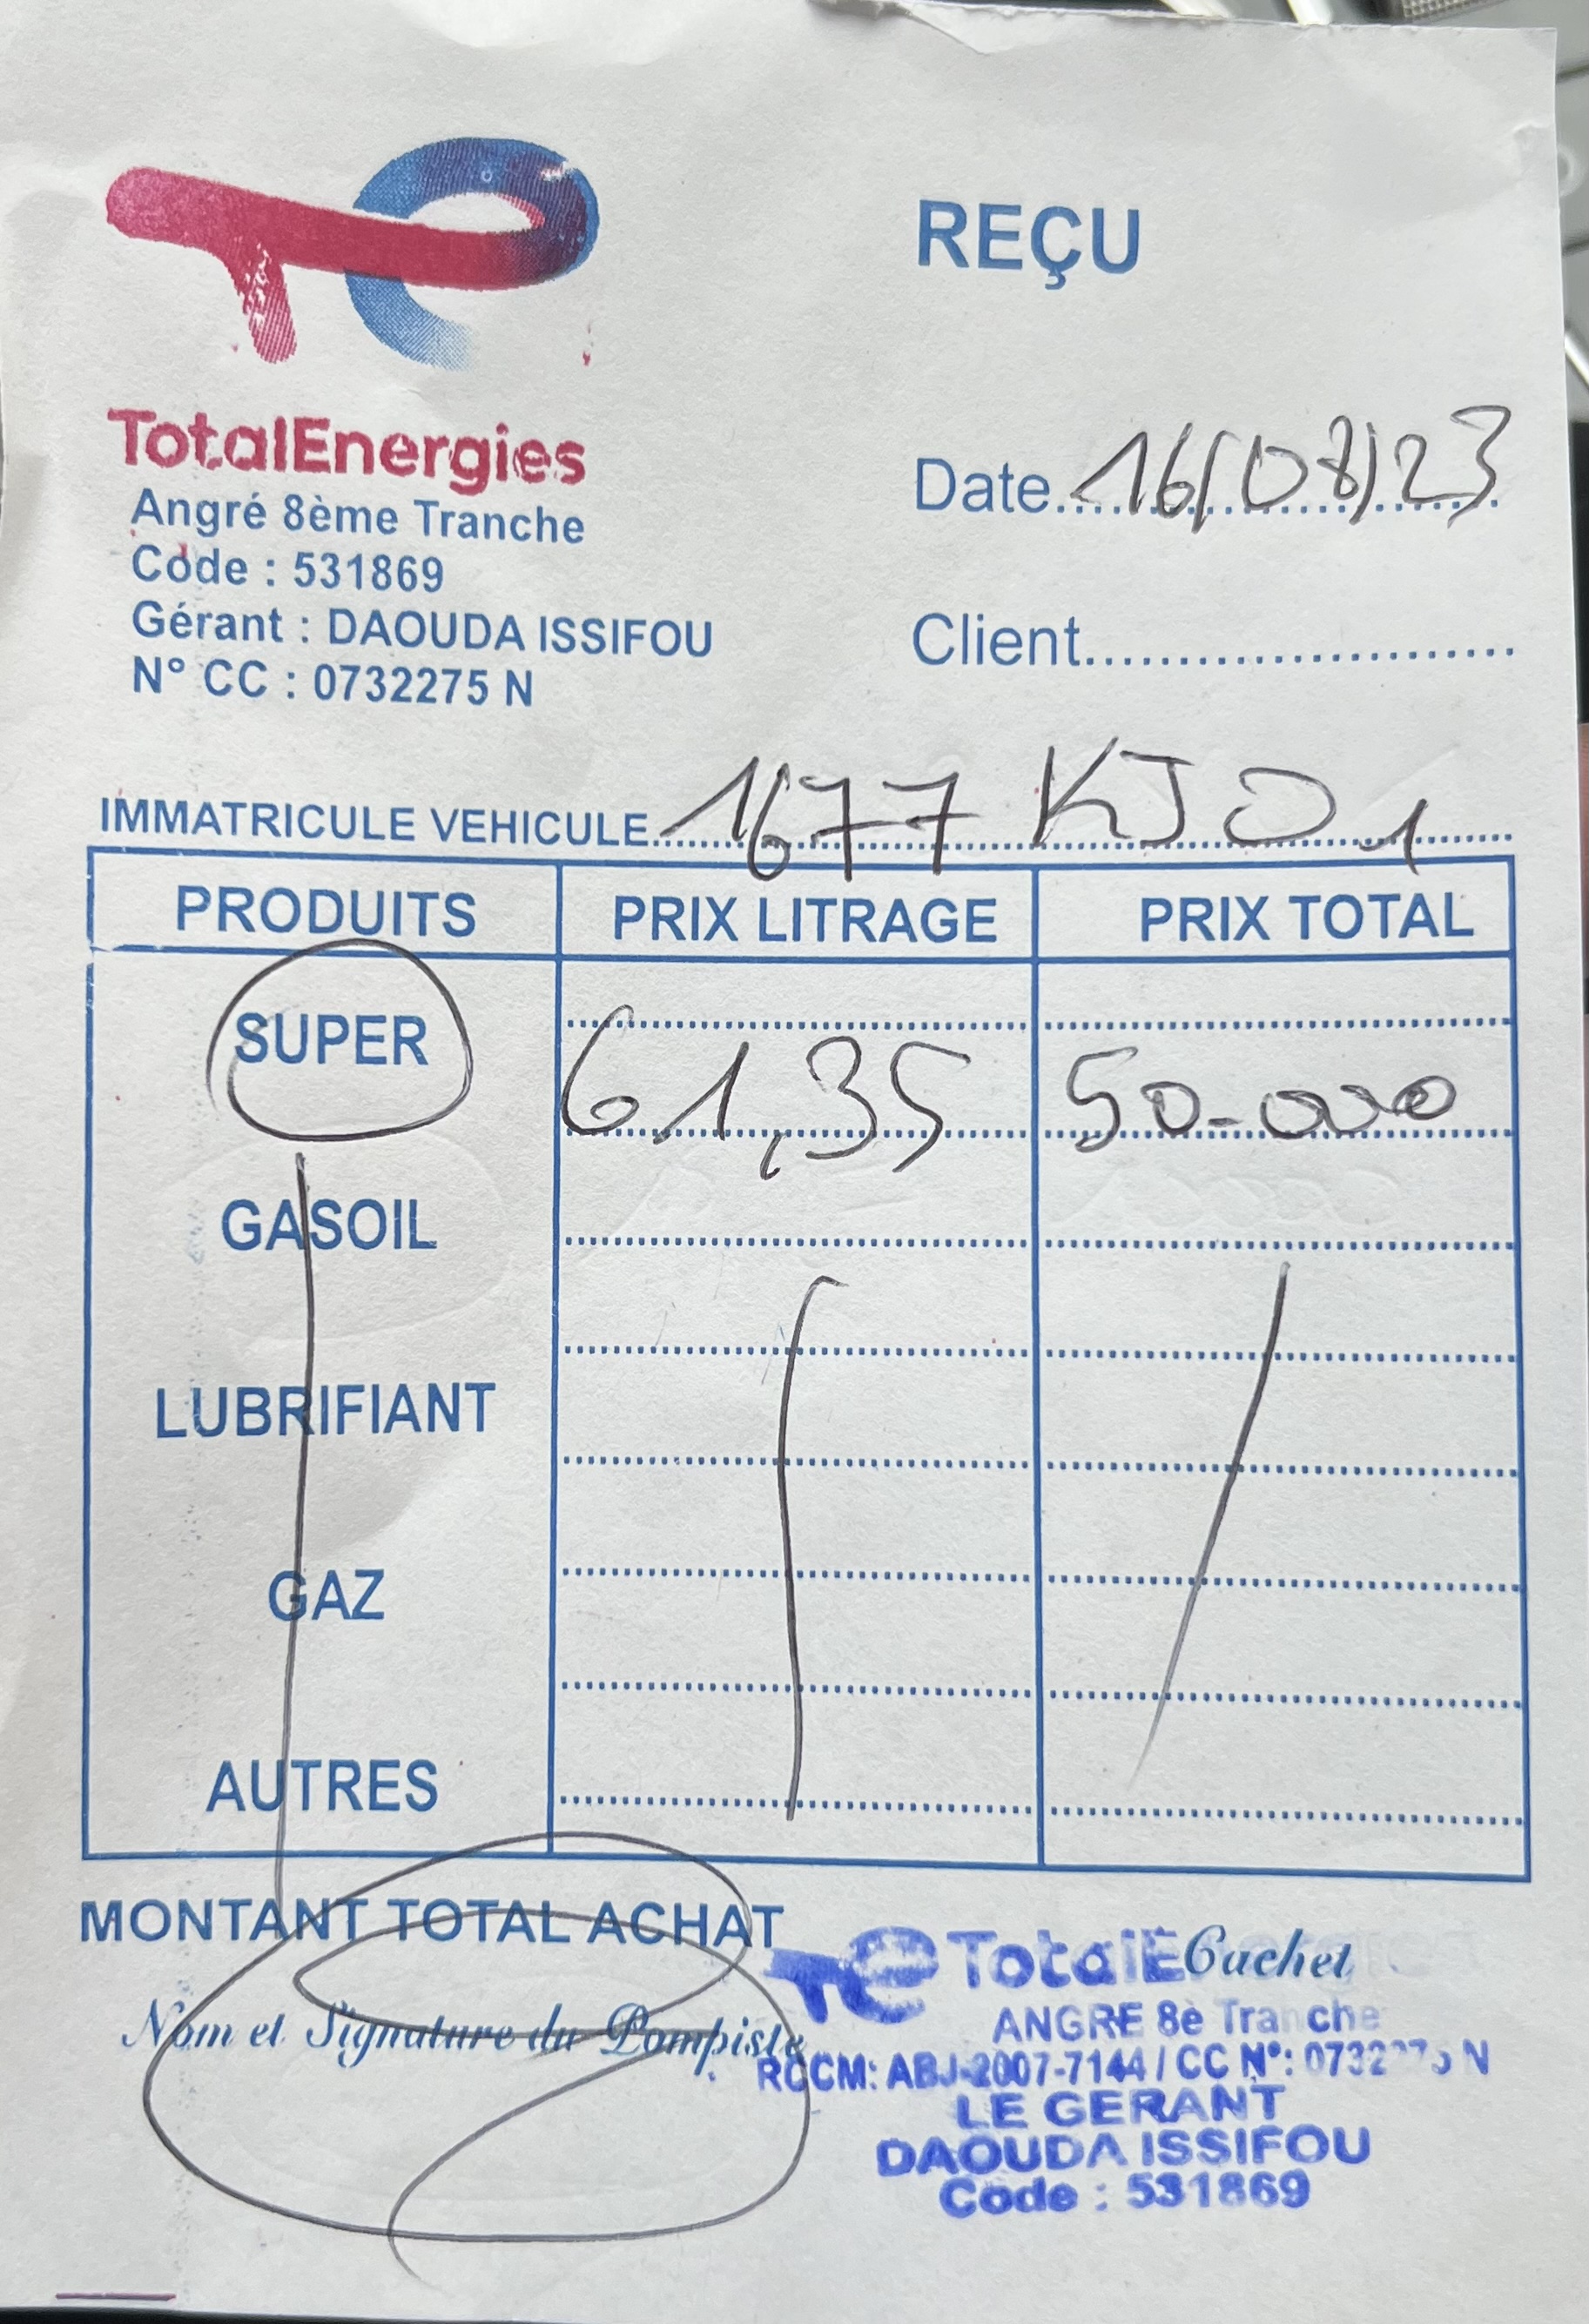 REÇU
TotalEnergies
Angré 8ème Tranche
Code : 531869
Gérant : DAOUDA ISSIFOU
N° CC : 0732275 N
Date 16/08/23
Client
IMMATRICULE VEHICULE 1677 KJ 01
PRODUITS PRIX LITRAGE PRIX TOTAL
SUPER 61,35 50-000
GASOIL
LUBRIFIANT
GAZ
AUTRES
MONTANT TOTAL ACHAT
Nom et Signature du Pompiste
Cachet
TotalE
ANGRE 8è Tranche
RCCM: ABJ-2007-7144 / CC N°: 0732275 N
LE GERANT
DAOUDA ISSIFOU
Code : 531869